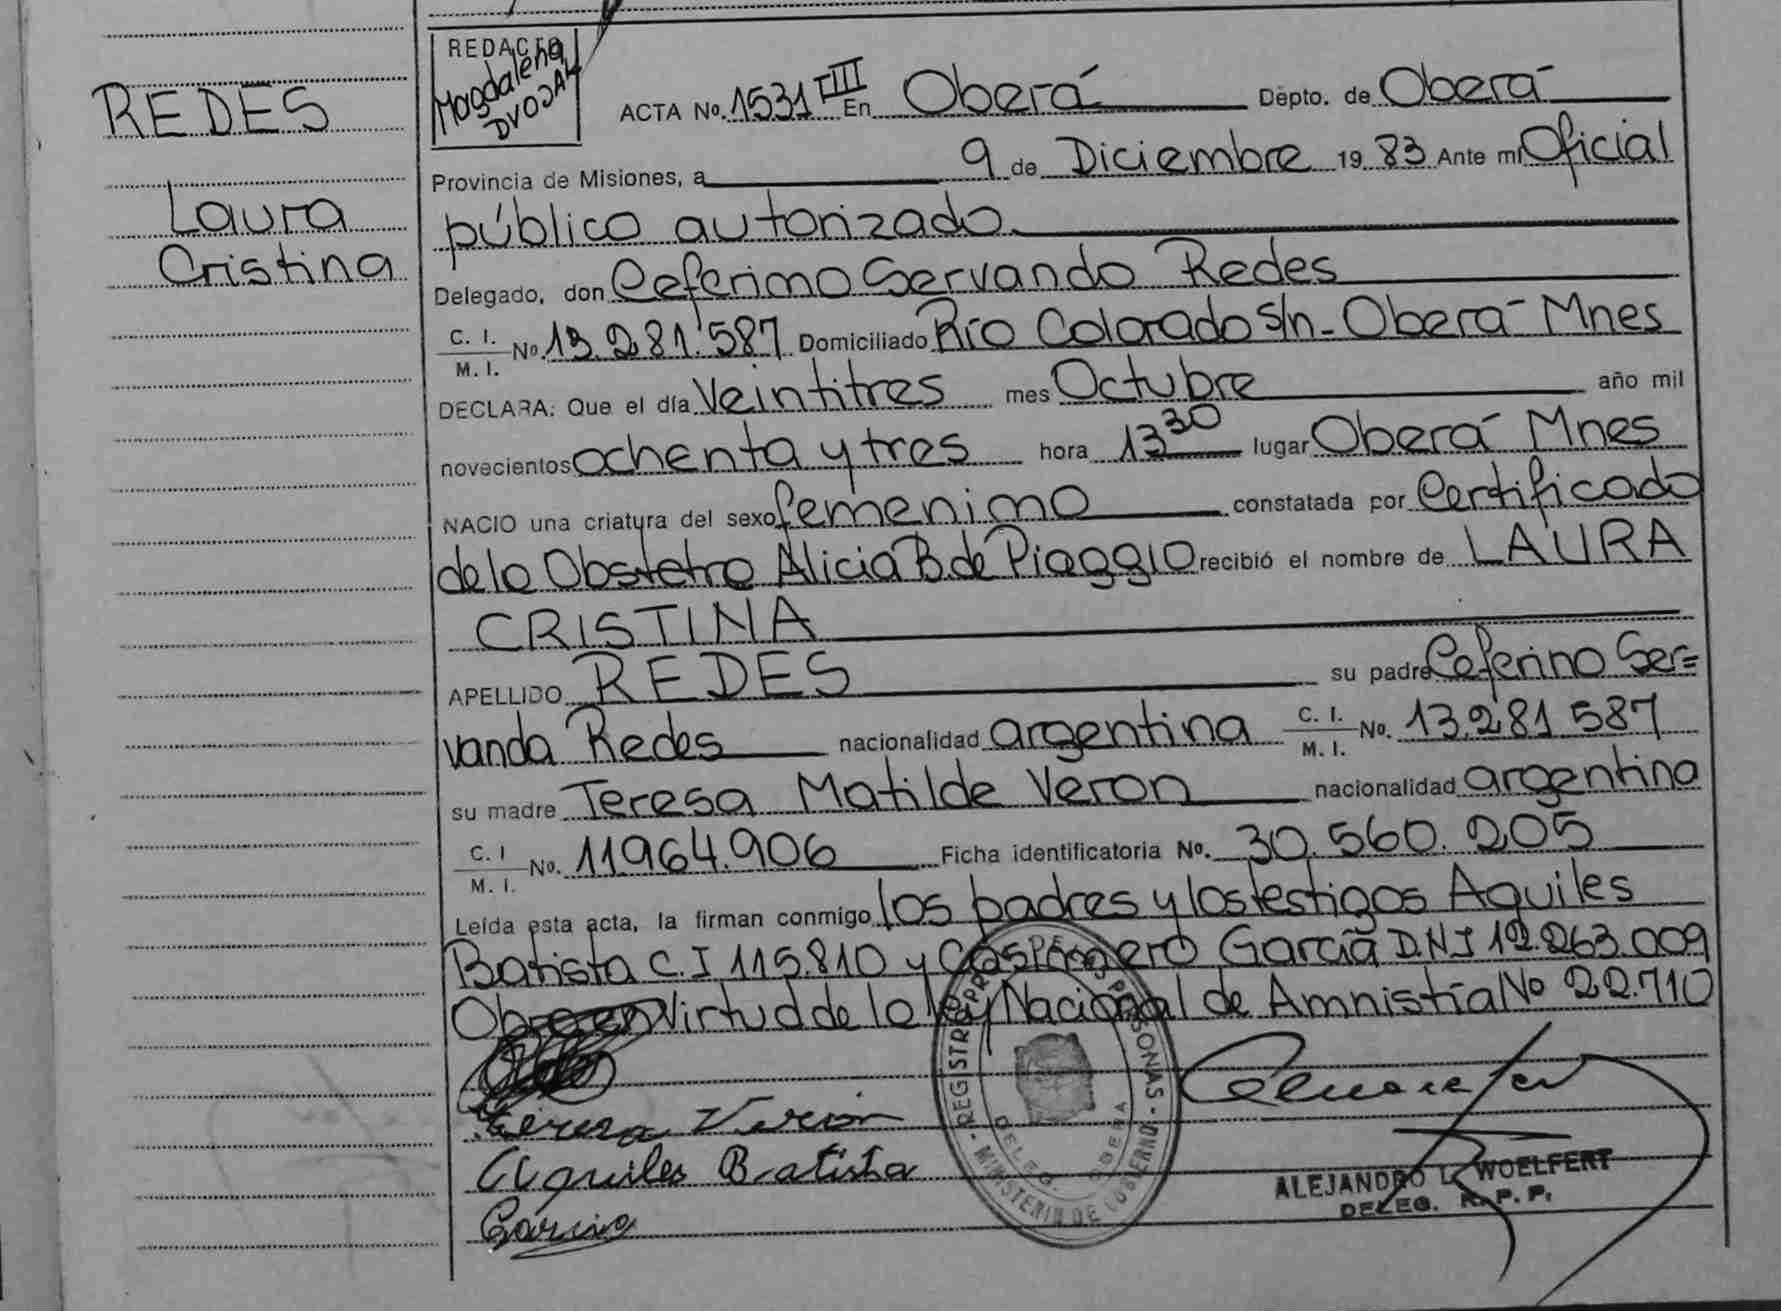 REDES
Laura
Cristina
REDACTO
Magdalena
DVOJAK
ACTA No. 1531 TIII En Oberá Depto. de Oberá
Provincia de Misiones, a 9 de Diciembre 19 83 Ante mi Oficial
público autorizado
Delegado, don Ceferino Servando Redes
C. I. / M. I. No 13.281.587 Domiciliado Río Colorado s/n - Oberá Mnes
DECLARA: Que el día Veintitres mes Octubre año mil
novecientos ochenta y tres hora 13 30 lugar Oberá Mnes
NACIO una criatura del sexo femenino constatada por Certificado
de la Obstetra Alicia B. de Piaggio recibió el nombre de LAURA
CRISTINA
APELLIDO REDES su padre Ceferino Ser=
vando Redes nacionalidad argentina C. I. / M. I. No. 13.281.587
su madre Teresa Matilde Veron nacionalidad argentina
C. I / M. I. No. 11.964.906 Ficha identificatoria No. 30.560.205
Leída esta acta, la firman conmigo los padres y los testigos Aquiles
Batista C.I 115.810 y García D.N.I 12.263.009
Obra en Virtud de la ley Nacional de Amnistía No 22.710
Teresa Verón
Aquiles Batista
García
REGISTRO PERSONAS - MINISTERIO DE GOBIERNO
DELEG. OBERA
ALEJANDRO L. WOELFERT
DELEG. R. P. P.